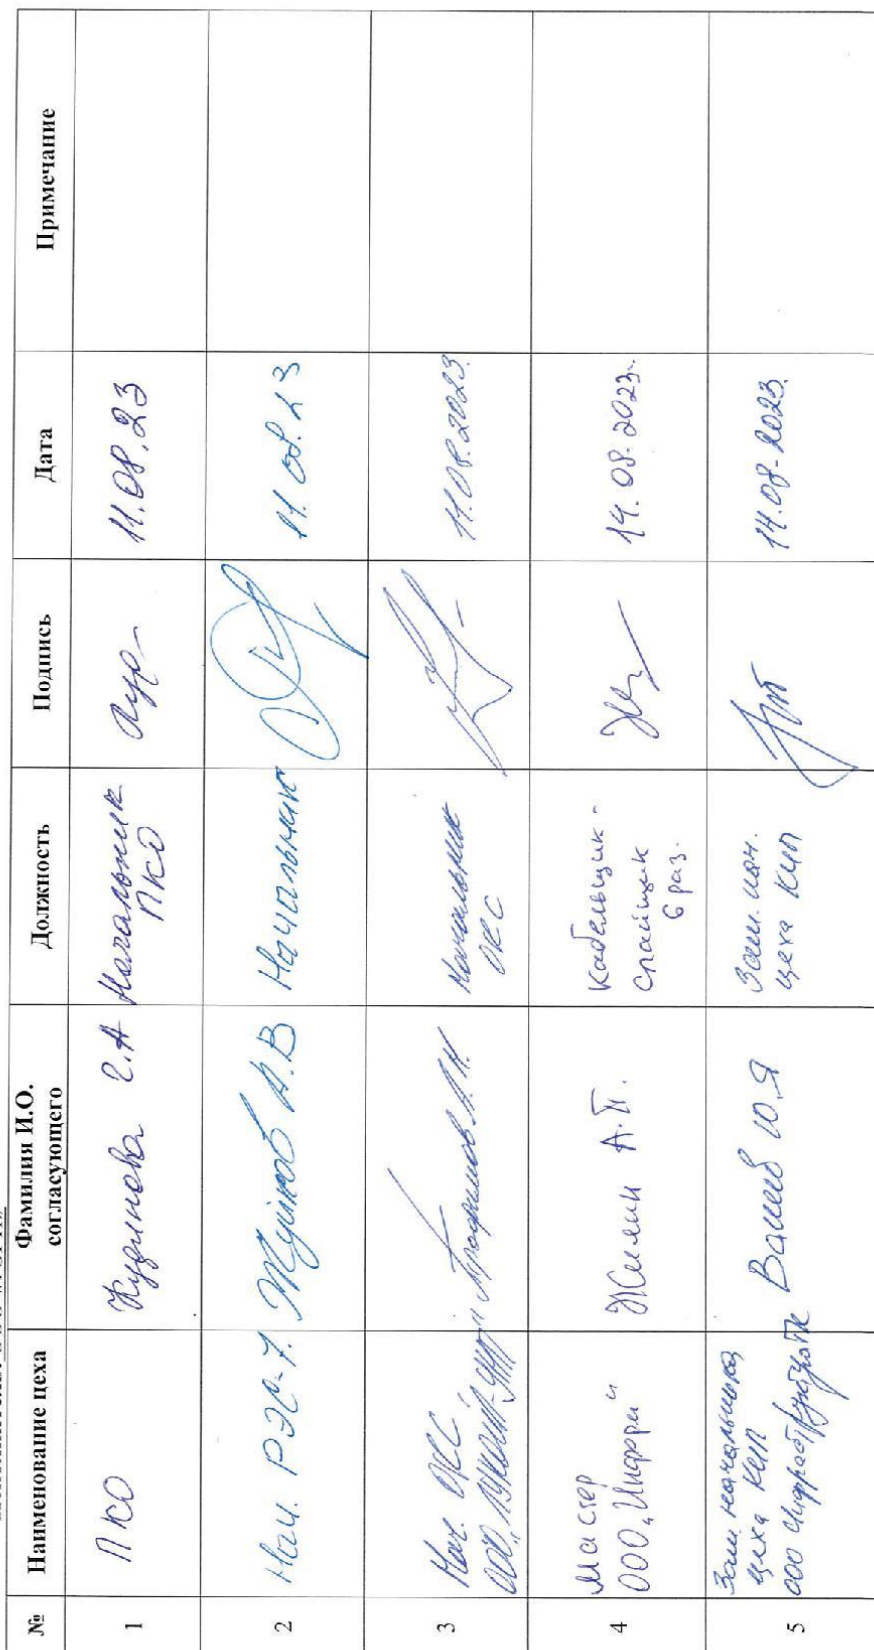 № Наименование цеха Фамилия И.О. согласующего Должность Подпись Дата Примечание
1 ПКО Кудинова Е.А Начальник ПКО 11.08.23
2 Нач. РЭС-7. А.В Начальник 11.08.23
3 Нач. ОКС ООО Трофимов А.Н. Начальник ОКС 11.08.2023.
4 Мастер ООО „Инфра" Жилин А.П. Кабельщик-спайщик 6 раз. 14.08.2023.
5 Зам. начальника цеха КИП ООО Ю.Я Зам. нач. цеха КИП 14.08.2023.